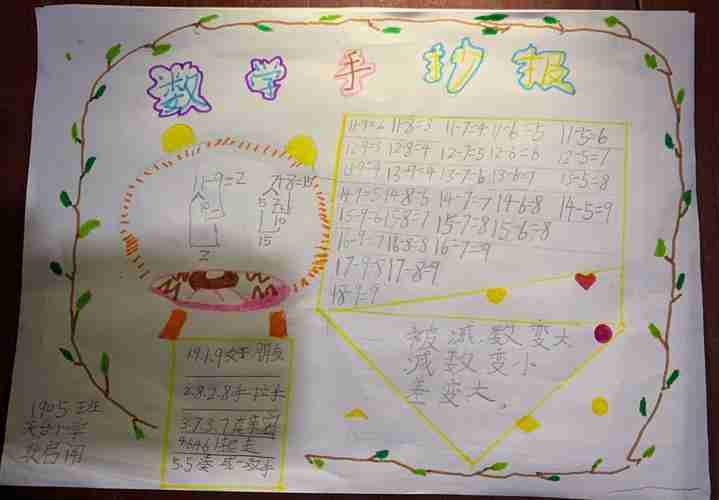 数学手抄报
11-9=2 11-8=3 11-7=4 11-6=5 11-5=6
12-9=3 12-8=4 12-7=5 12-6=6 12-5=7
13-9=4 13-7=6 13-6=7 13-5=8
14-9=5 14-8=6 14-7=7 14-6=8 14-5=9
15-9=6 15-8=7 15-7=8 15-6=8
16-9=7 16-8=8 16-7=9
17-9=8 17-8=9
18-9=9
11-9=2
7+8=15
5 2
10
15
2
被减数变大
减数变小
差变大,
1.9.1.9 好朋友
2.8.2.8手拉手
3.7.3.7
4.6.4.6一起走
5.5凑成一双手
1905班